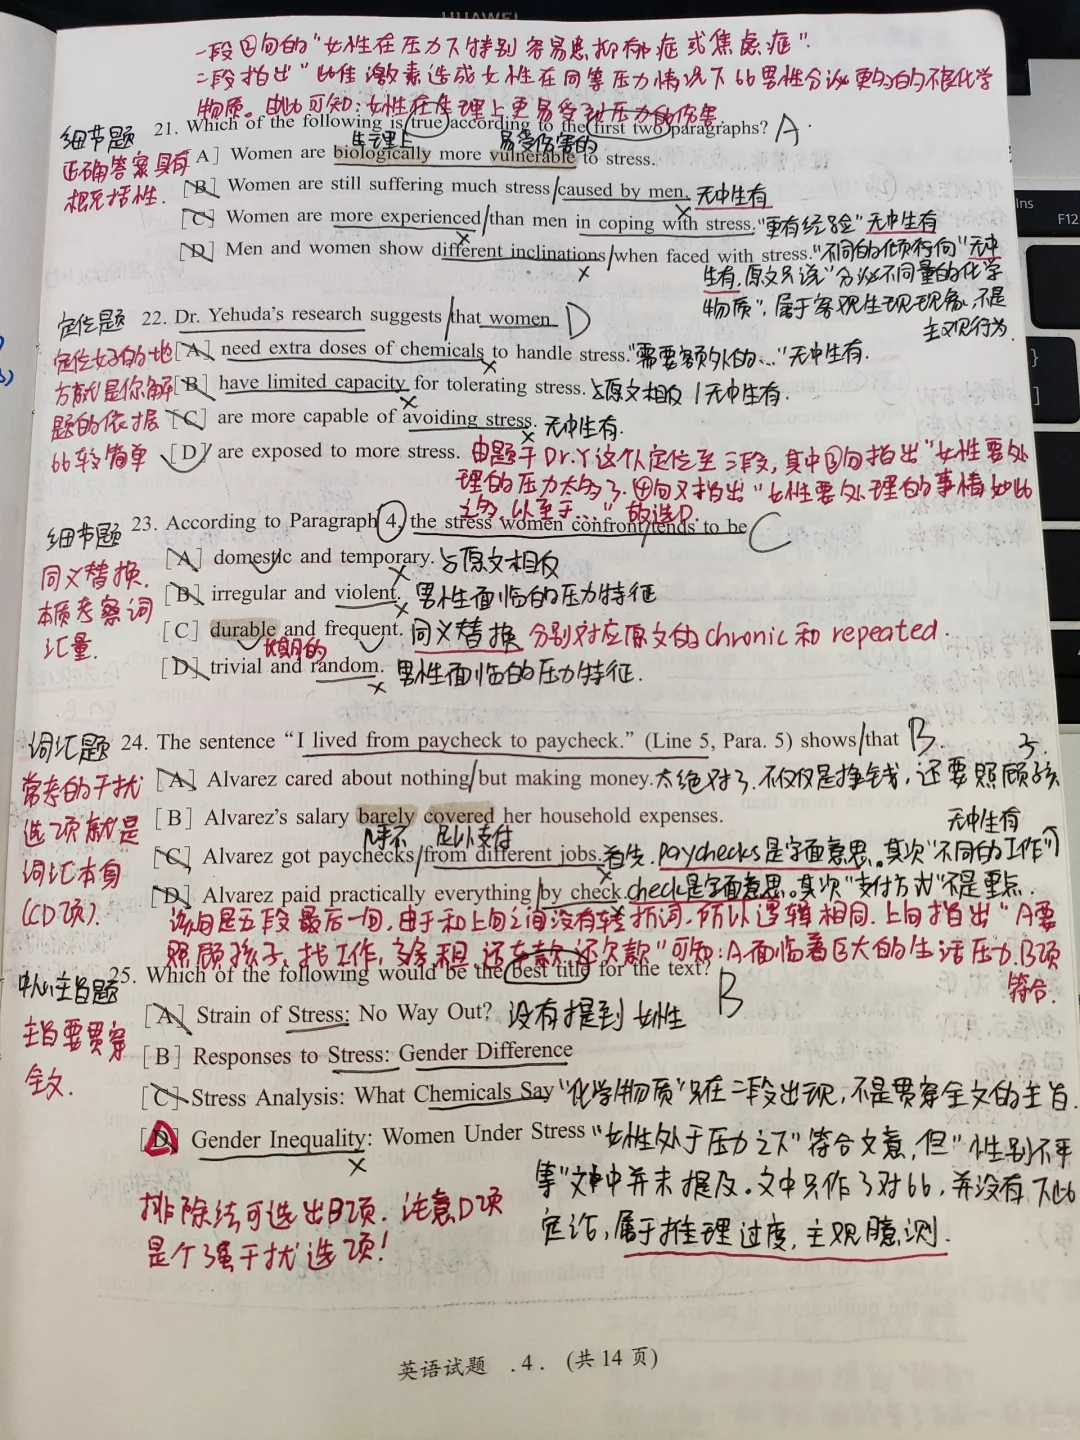 HUAWEI
一段②句的"女性在压力下特别容易患抑郁症或焦虑症".
二段指出"雌性激素造成女性在同等压力情况下比男性分泌更多的不良化学
物质。由此可知:女性在生理上更易受到压力的伤害
细节题
21. Which of the following is true according to the first two paragraphs? A
正确答案具有
概括性.
生理上 易受伤害的
[A] Women are biologically more vulnerable to stress.
[B] Women are still suffering much stress caused by men. 无中生有
[C] Women are more experienced than men in coping with stress. "更有经验"无中生有
[D] Men and women show different inclinations when faced with stress. "不同的倾向"无中
生有,原文只说"分泌不同量的化学
物质",属于客观生理现象,不是
主观行为.
定位题
22. Dr. Yehuda's research suggests that women D
定位好的地
方就是你解
题的依据
比较简单
[A] need extra doses of chemicals to handle stress. "需要额外的…"无中生有.
[B] have limited capacity for tolerating stress. 与原文相反/无中生有.
[C] are more capable of avoiding stress. 无中生有.
[D] are exposed to more stress. 由题干Dr.Y这个人定位至三段,其中③句指出"女性要处
理的压力太多了.④句又指出"女性要处理的事情如此
之多,以至于…"故选D.
细节题
23. According to Paragraph 4, the stress women confront tends to be C
同义替换.
本质考察词
汇量.
[A] domestic and temporary. 与原文相反
[B] irregular and violent. 男性面临的压力特征
[C] durable and frequent. 同义替换 分别对应原文的chronic和repeated.
长期的
[D] trivial and random. 男性面临的压力特征.
词汇题
24. The sentence "I lived from paycheck to paycheck." (Line 5, Para. 5) shows that B.
常考的干扰
选项就是
词汇本身
(CD项).
[A] Alvarez cared about nothing but making money. 太绝对了.不仅仅是挣钱,还要照顾孩
子.
[B] Alvarez's salary barely covered her household expenses.
几乎不 足以支付
[C] Alvarez got paychecks from different jobs. 首先.paychecks是字面意思。其次"不同的工作"
无中生有
[D] Alvarez paid practically everything by check. check是字面意思。其次"支付方式"不是重点.
该句是五段最后一句,由于和上句之间没有转折词,所以逻辑相同.上句指出"A要
照顾孩子、找工作,交房租,还车款,还欠款"可知:A面临着巨大的生活压力.B项
符合.
中心主旨题
25. Which of the following would be the best title for the text? B
主旨要贯穿
全文.
[A] Strain of Stress: No Way Out? 没有提到女性
[B] Responses to Stress: Gender Difference
[C] Stress Analysis: What Chemicals Say "化学物质"只在二段出现,不是贯穿全文的主旨.
[D] Gender Inequality: Women Under Stress "女性处于压力之下"符合文意,但"性别不平
等"文中并未提及。文中只作了对比,并没有下此
定论,属于推理过度,主观臆测.
排除法可选出B项. 注意D项
是个强干扰选项!
英语试题 . 4 . (共 14 页)
Ins
F12